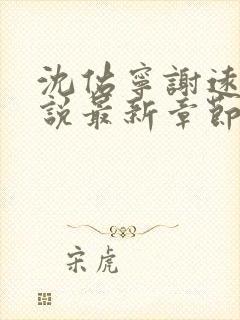 沈佑寧謝遠
說最新章節
宋虎